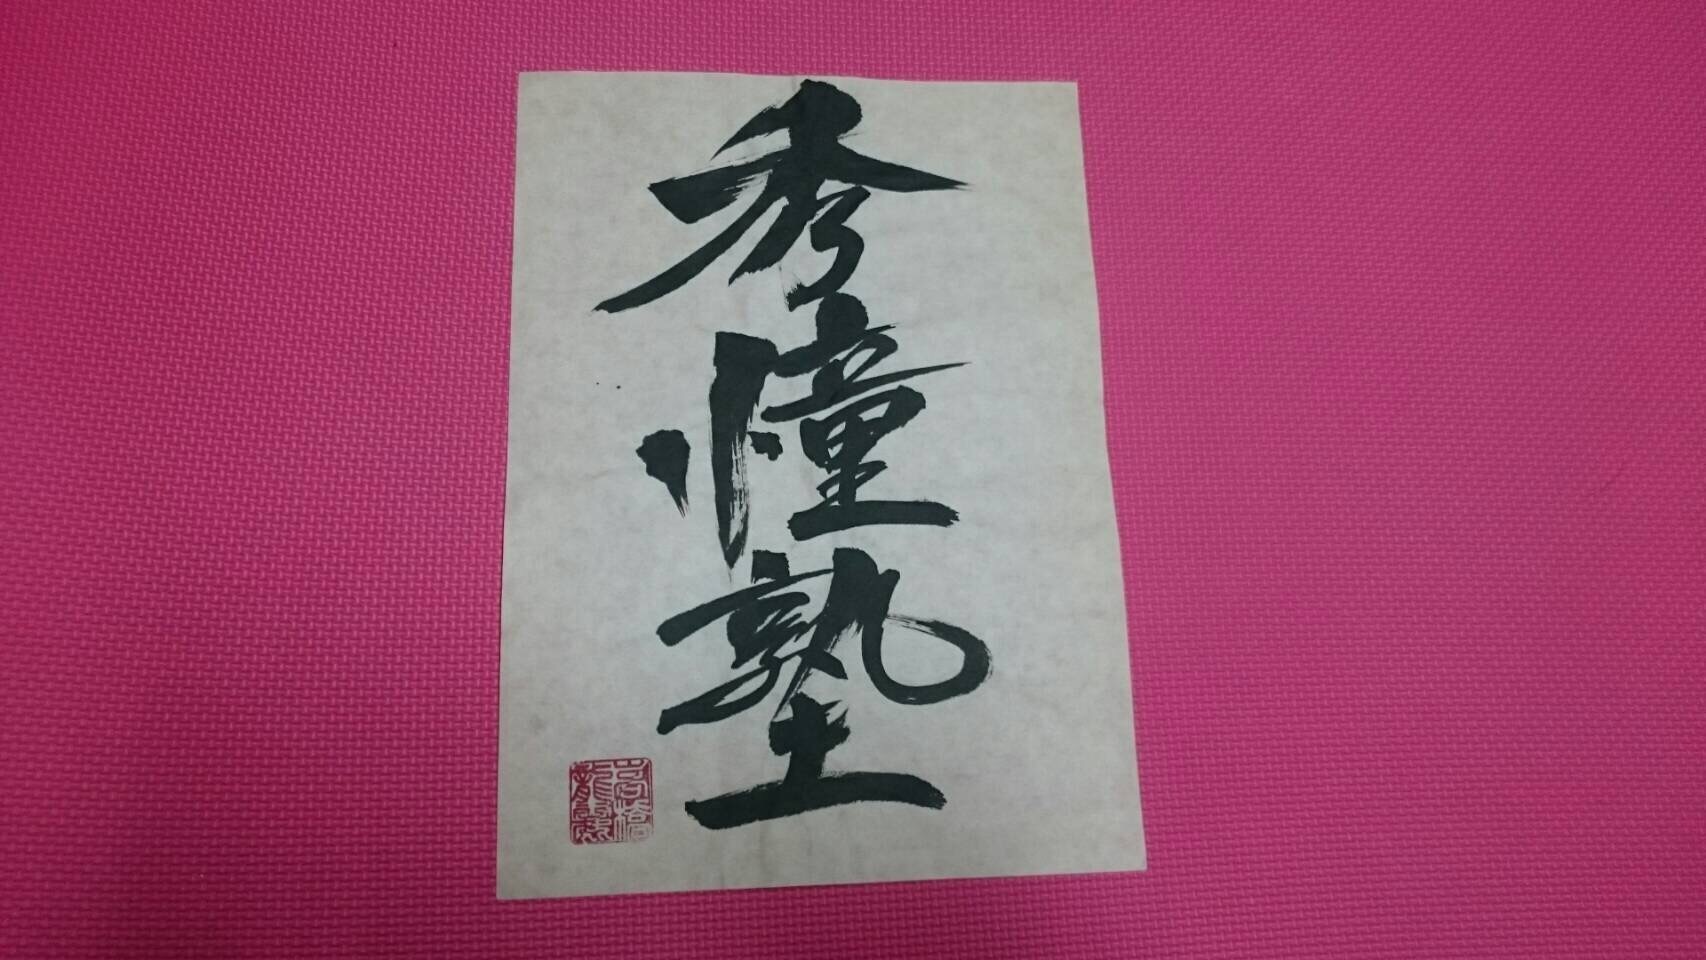 秀憧塾